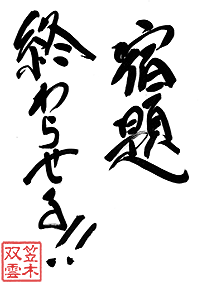 宿題
終わらせる!!
笠木
双雲